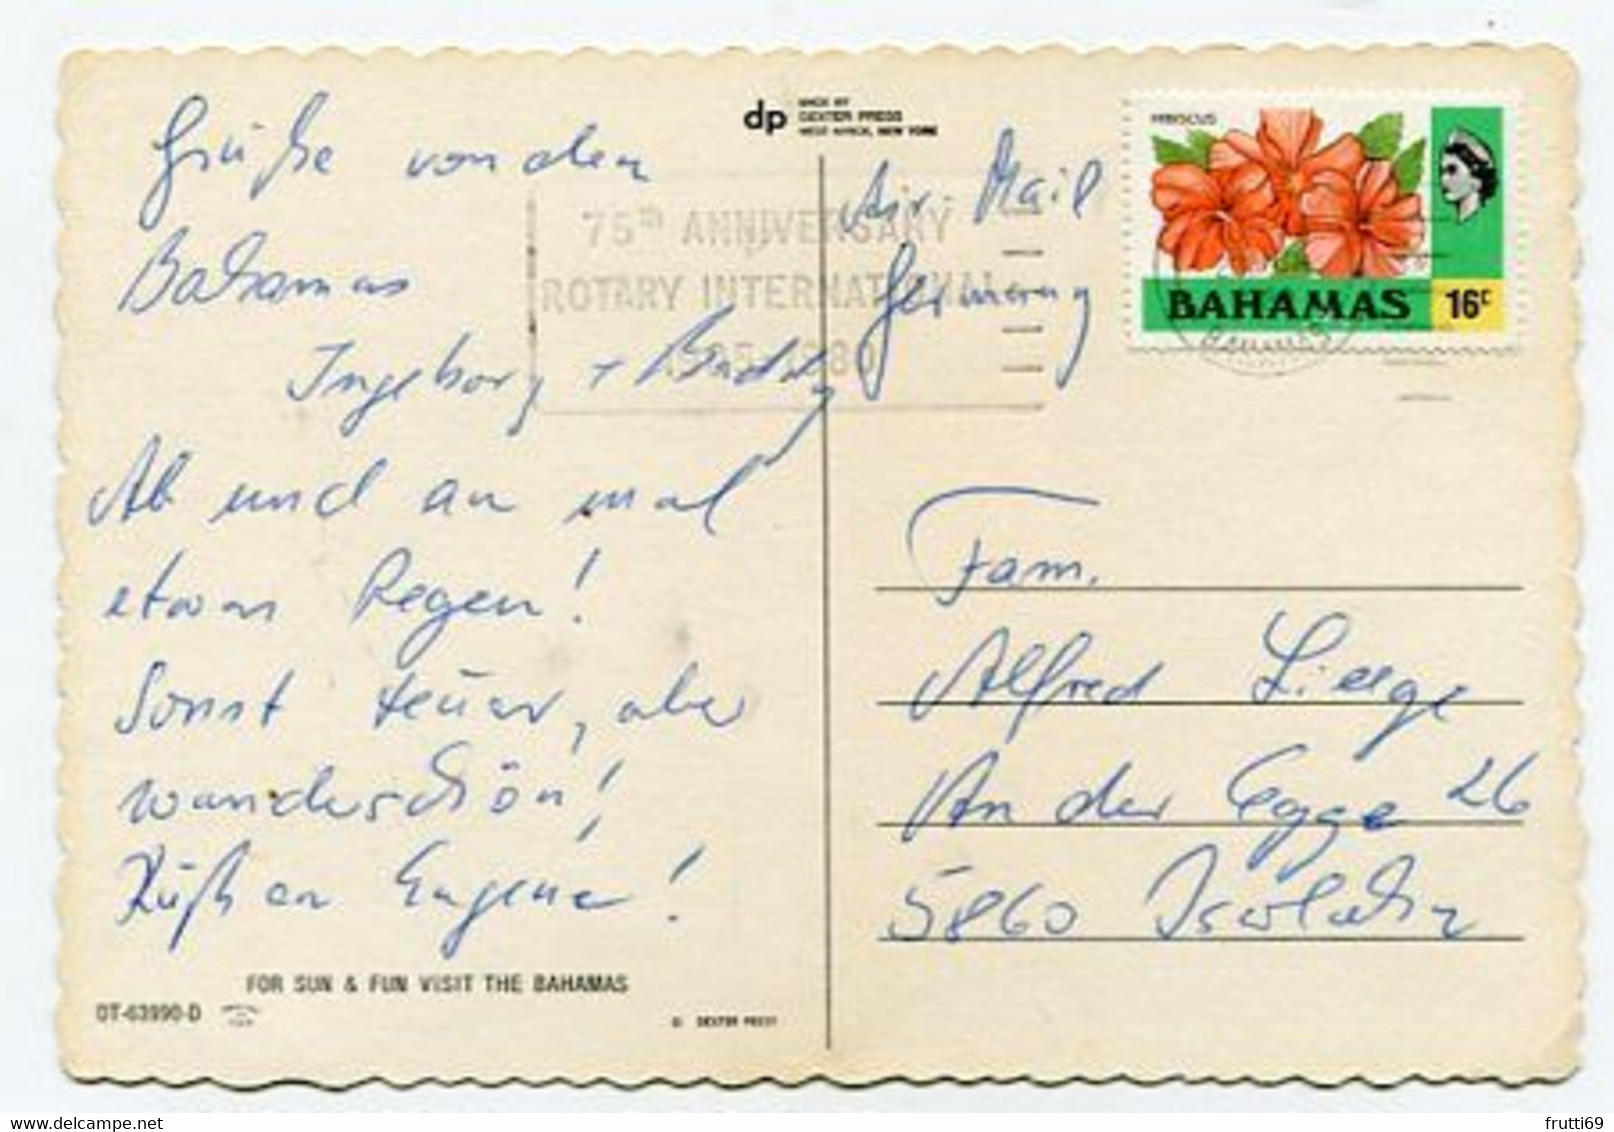 Grüße von den
Bahamas
Ingeborg + Buddy
Ab und an mal
etwas Regen!
Sonst teuer, aber
wunderschön!
FOR SUN & FUN VISIT THE BAHAMAS
DT-63990-D
© DEXTER PRESS
dp
MADE BY
DEXTER PRESS
WEST NYACK, NEW YORK
75TH ANNIVERSARY
ROTARY INTERNATIONAL
Air Mail
Germany
HIBISCUS
BAHAMAS 16c
Fam.
Alfred
An der Egge 26
5860 Iserlohn
frutti69